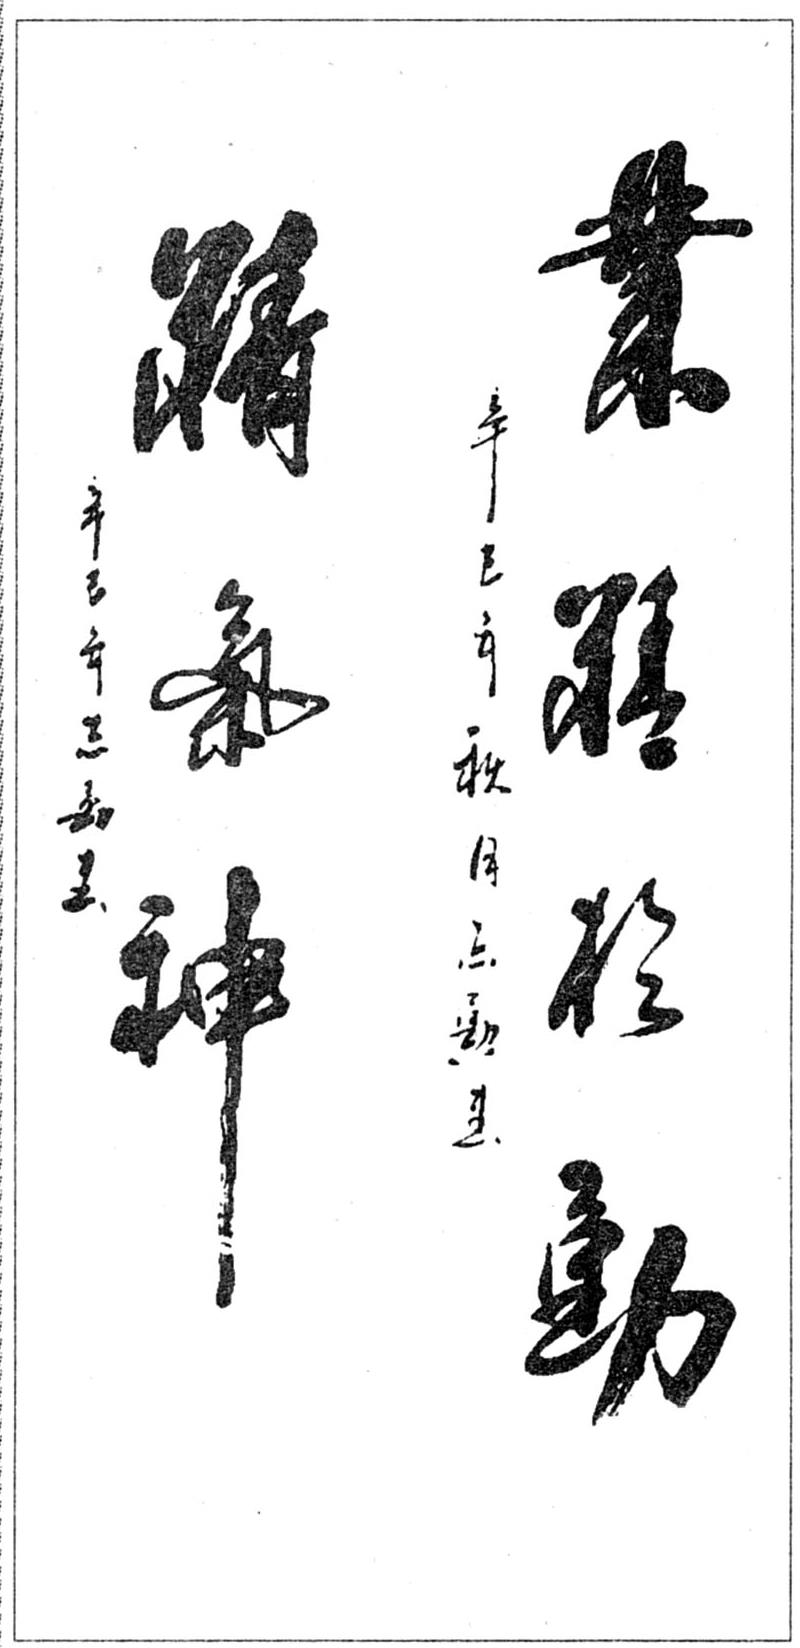 業精於勤
辛巳年秋月志勳書
精氣神
辛巳年志勛書